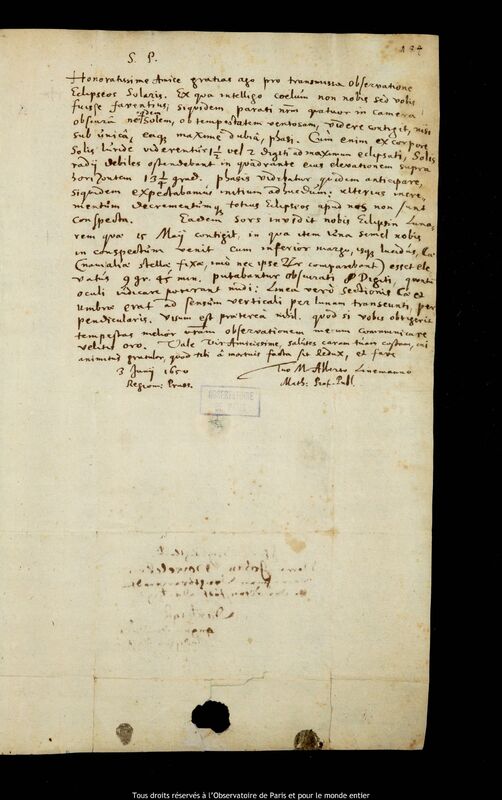 S. P.
Honoratissime Amice gratias ago pro transmissa Observatione
Eclipseos Solaris. Ex qua intelligo coelum non nobis sed vobis
fuisse faventius; siquidem parati in camera
obscura Solem, ob tempestatem ventosam, videre contigit, nisi
sub unicâ, eaq; maximè dubiâ, phasi. Cùm enim ex corpore
Solis lividè viderentur 1 1/2 vel 2 digiti ad maximum eclipsati, Solis
radij debiles ostendebant in quadrante eius elevationem supra
horizontem 13 1/4 grad. phasis videbatur quidem anticipare,
siquidem expectabamus initium adhucdum. ulterius incre-
mentum decrementumq; totius Eclipseos apud nos non sunt
conspecta. Eadem sors invidit nobis Eclipsin Luna-
rem quae 15 Maij contigit, in qua item Luna semel nobis
in conspectum venit cum inferior margo, usq; lucidus, (a
(nam alia stella fixa, imò nec ipse comparebant) esset ele-
vatus 9 gr. 45 min. putabantur obscurati 8 Digiti, quantum
oculi judicare poterant nudi: Linea verò Sectionis et
umbrae erat ad sensum verticali per lunam transeunti, per-
pendicularis. Visum est praeterea nihil. quod si vobis obtigerit
tempestas melior vestram observationem mecum communicare
velitis oro. Vale Vir Amicissime, salutes caram tuam costam, cui
animitus gratulor, quod tibi à mortuis facta sit redux, et fave
3 Junij 1650 Tuo M. Alberto Linemanno
Regiom: Pruss. Math: Prof. Publ.
OBSERVATOIRE
Tous droits réservés à l'Observatoire de Paris et pour le monde entier